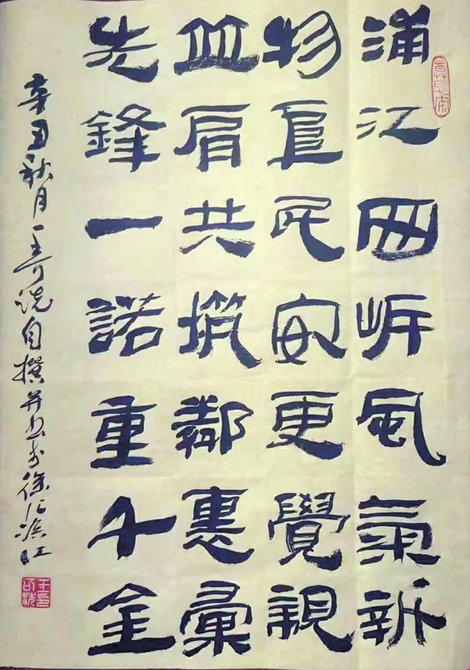 浦江两岸風氣新
物阜民安更覺親
並肩共筑鄰惠彙
先鋒一諾重千金
辛丑秋月王可说自撰并书于徐汇滨江